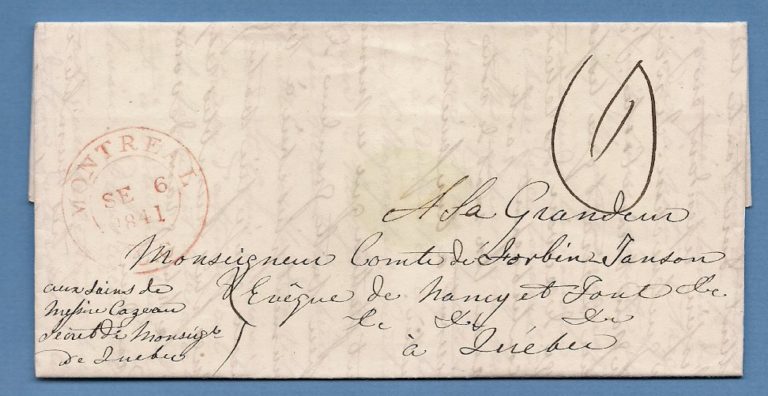 MONTREAL
SE 6
1841
A Sa Grandeur
Monseigneur Comte de Forbin Janson
Evêque de Nancy et Toul &c
&c &c &c
à Québec
aux soins de
Messire Cazeau
Secret de Monsigr
de Quebec